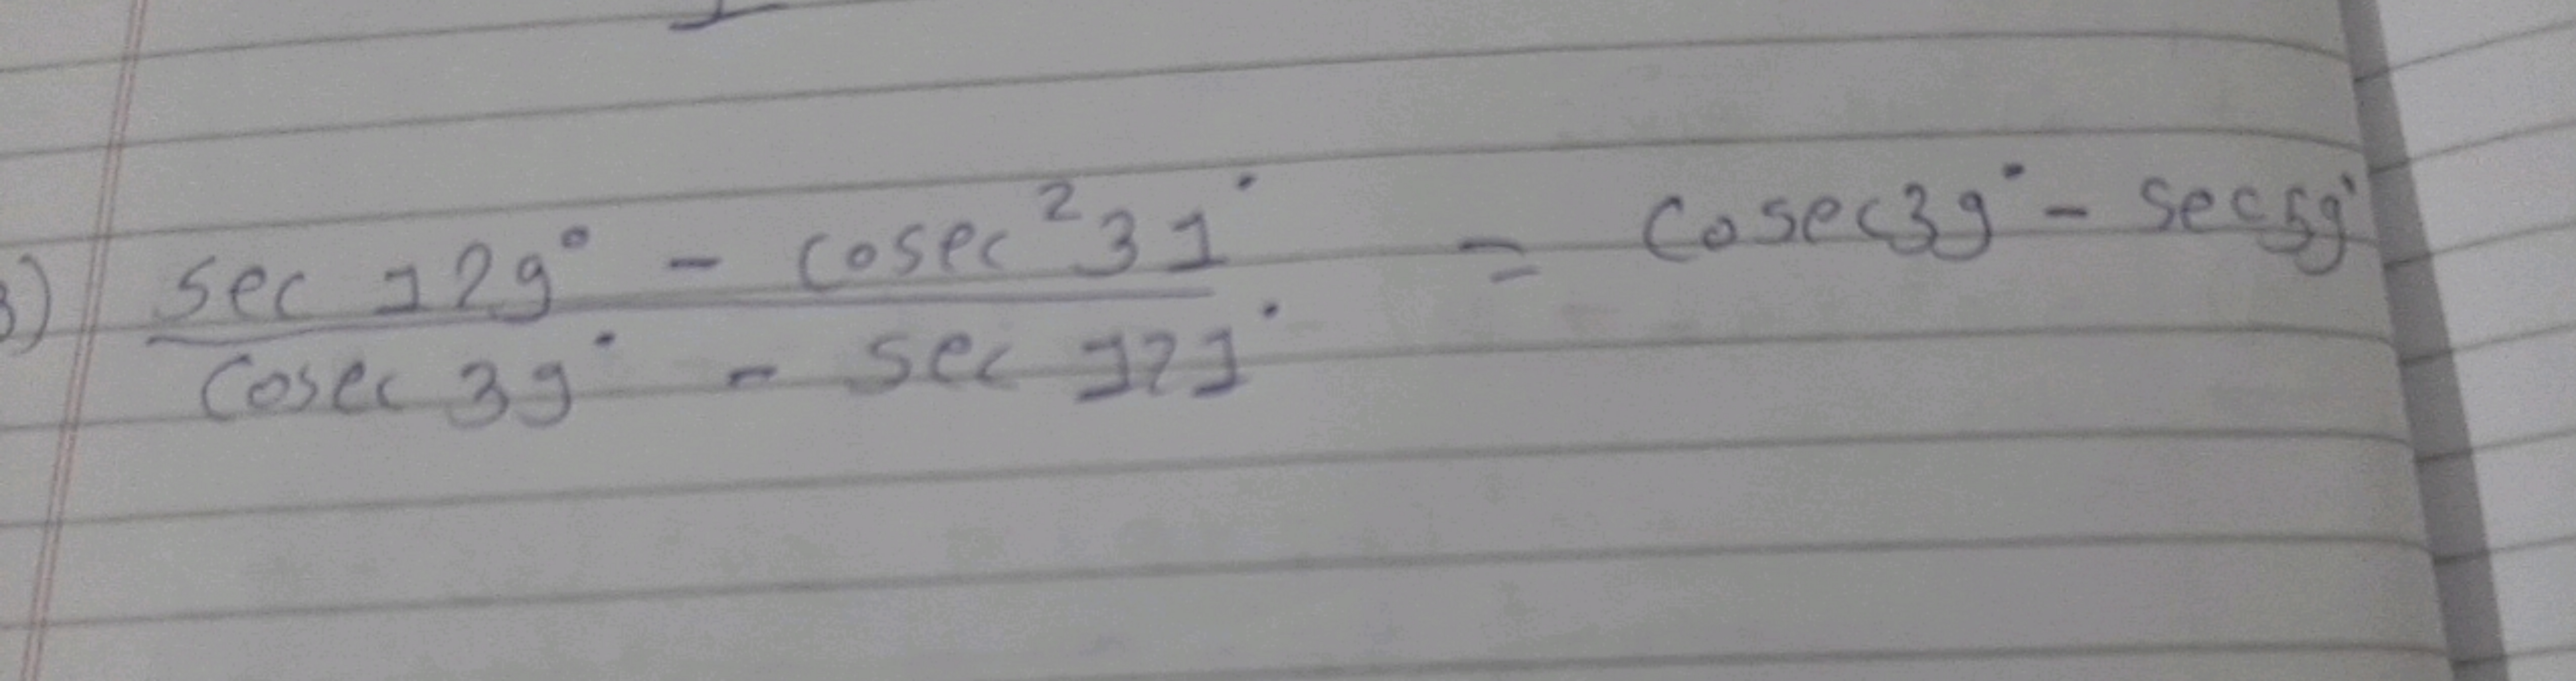 3) sec 129° - cosec²31° = cosec39° - sec59°
cosec 39° - sec 121°